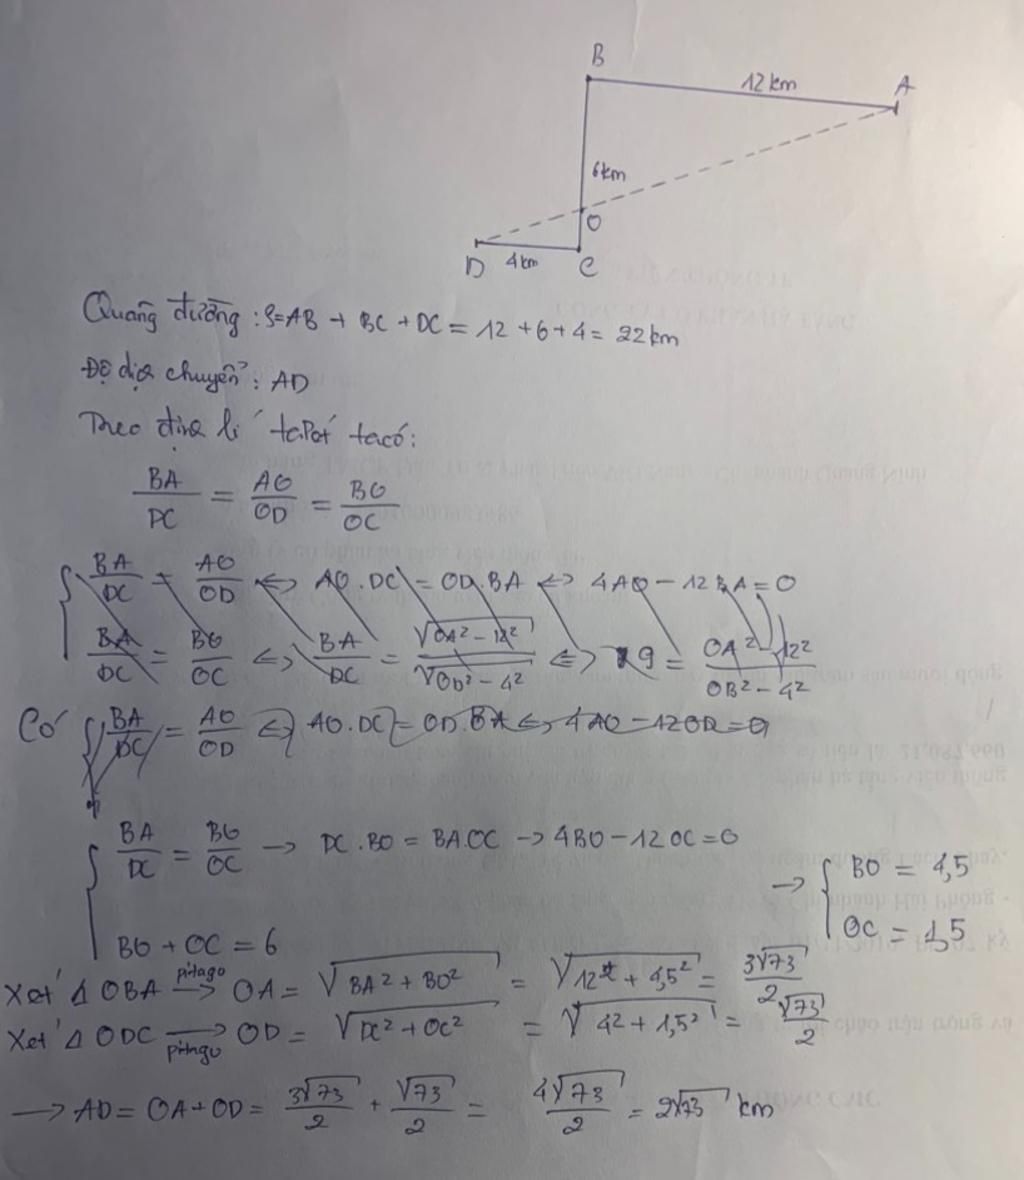 B
12km
A
6km
O
D
4km
C
Quãng đường : S=AB + BC + DC = 12 + 6 + 4 = 22km
Độ dịch chuyển : AD
Theo định lí talet ta có :
BA/DC = AO/OD = BO/OC
BA/DC = AO/OD <=> AO.DC = OD.BA <=> 4AO - 12BA = 0
BA/DC = BO/OC <=> BA/DC = √(OA² - 12²)/√(OD² - 4²) <=> 9 = (OA² - 12²)/(OB² - 4²)
Có { BA/DC = AO/OD <=> AO.DC = OD.BA <=> 4AO - 12OD = 0
{ BA/DC = BO/OC -> DC.BO = BA.OC -> 4BO - 12OC = 0
BO + OC = 6
-> { BO = 4,5
OC = 1,5
Xét Δ OBA pitago -> OA = √(BA² + BO²) = √(12² + 4,5²) = 3√73/2
Xét Δ ODC pitago -> OD = √(DC² + OC²) = √(4² + 1,5²) = √73/2
-> AD = OA + OD = 3√73/2 + √73/2 = 4√73/2 = 2√73 km